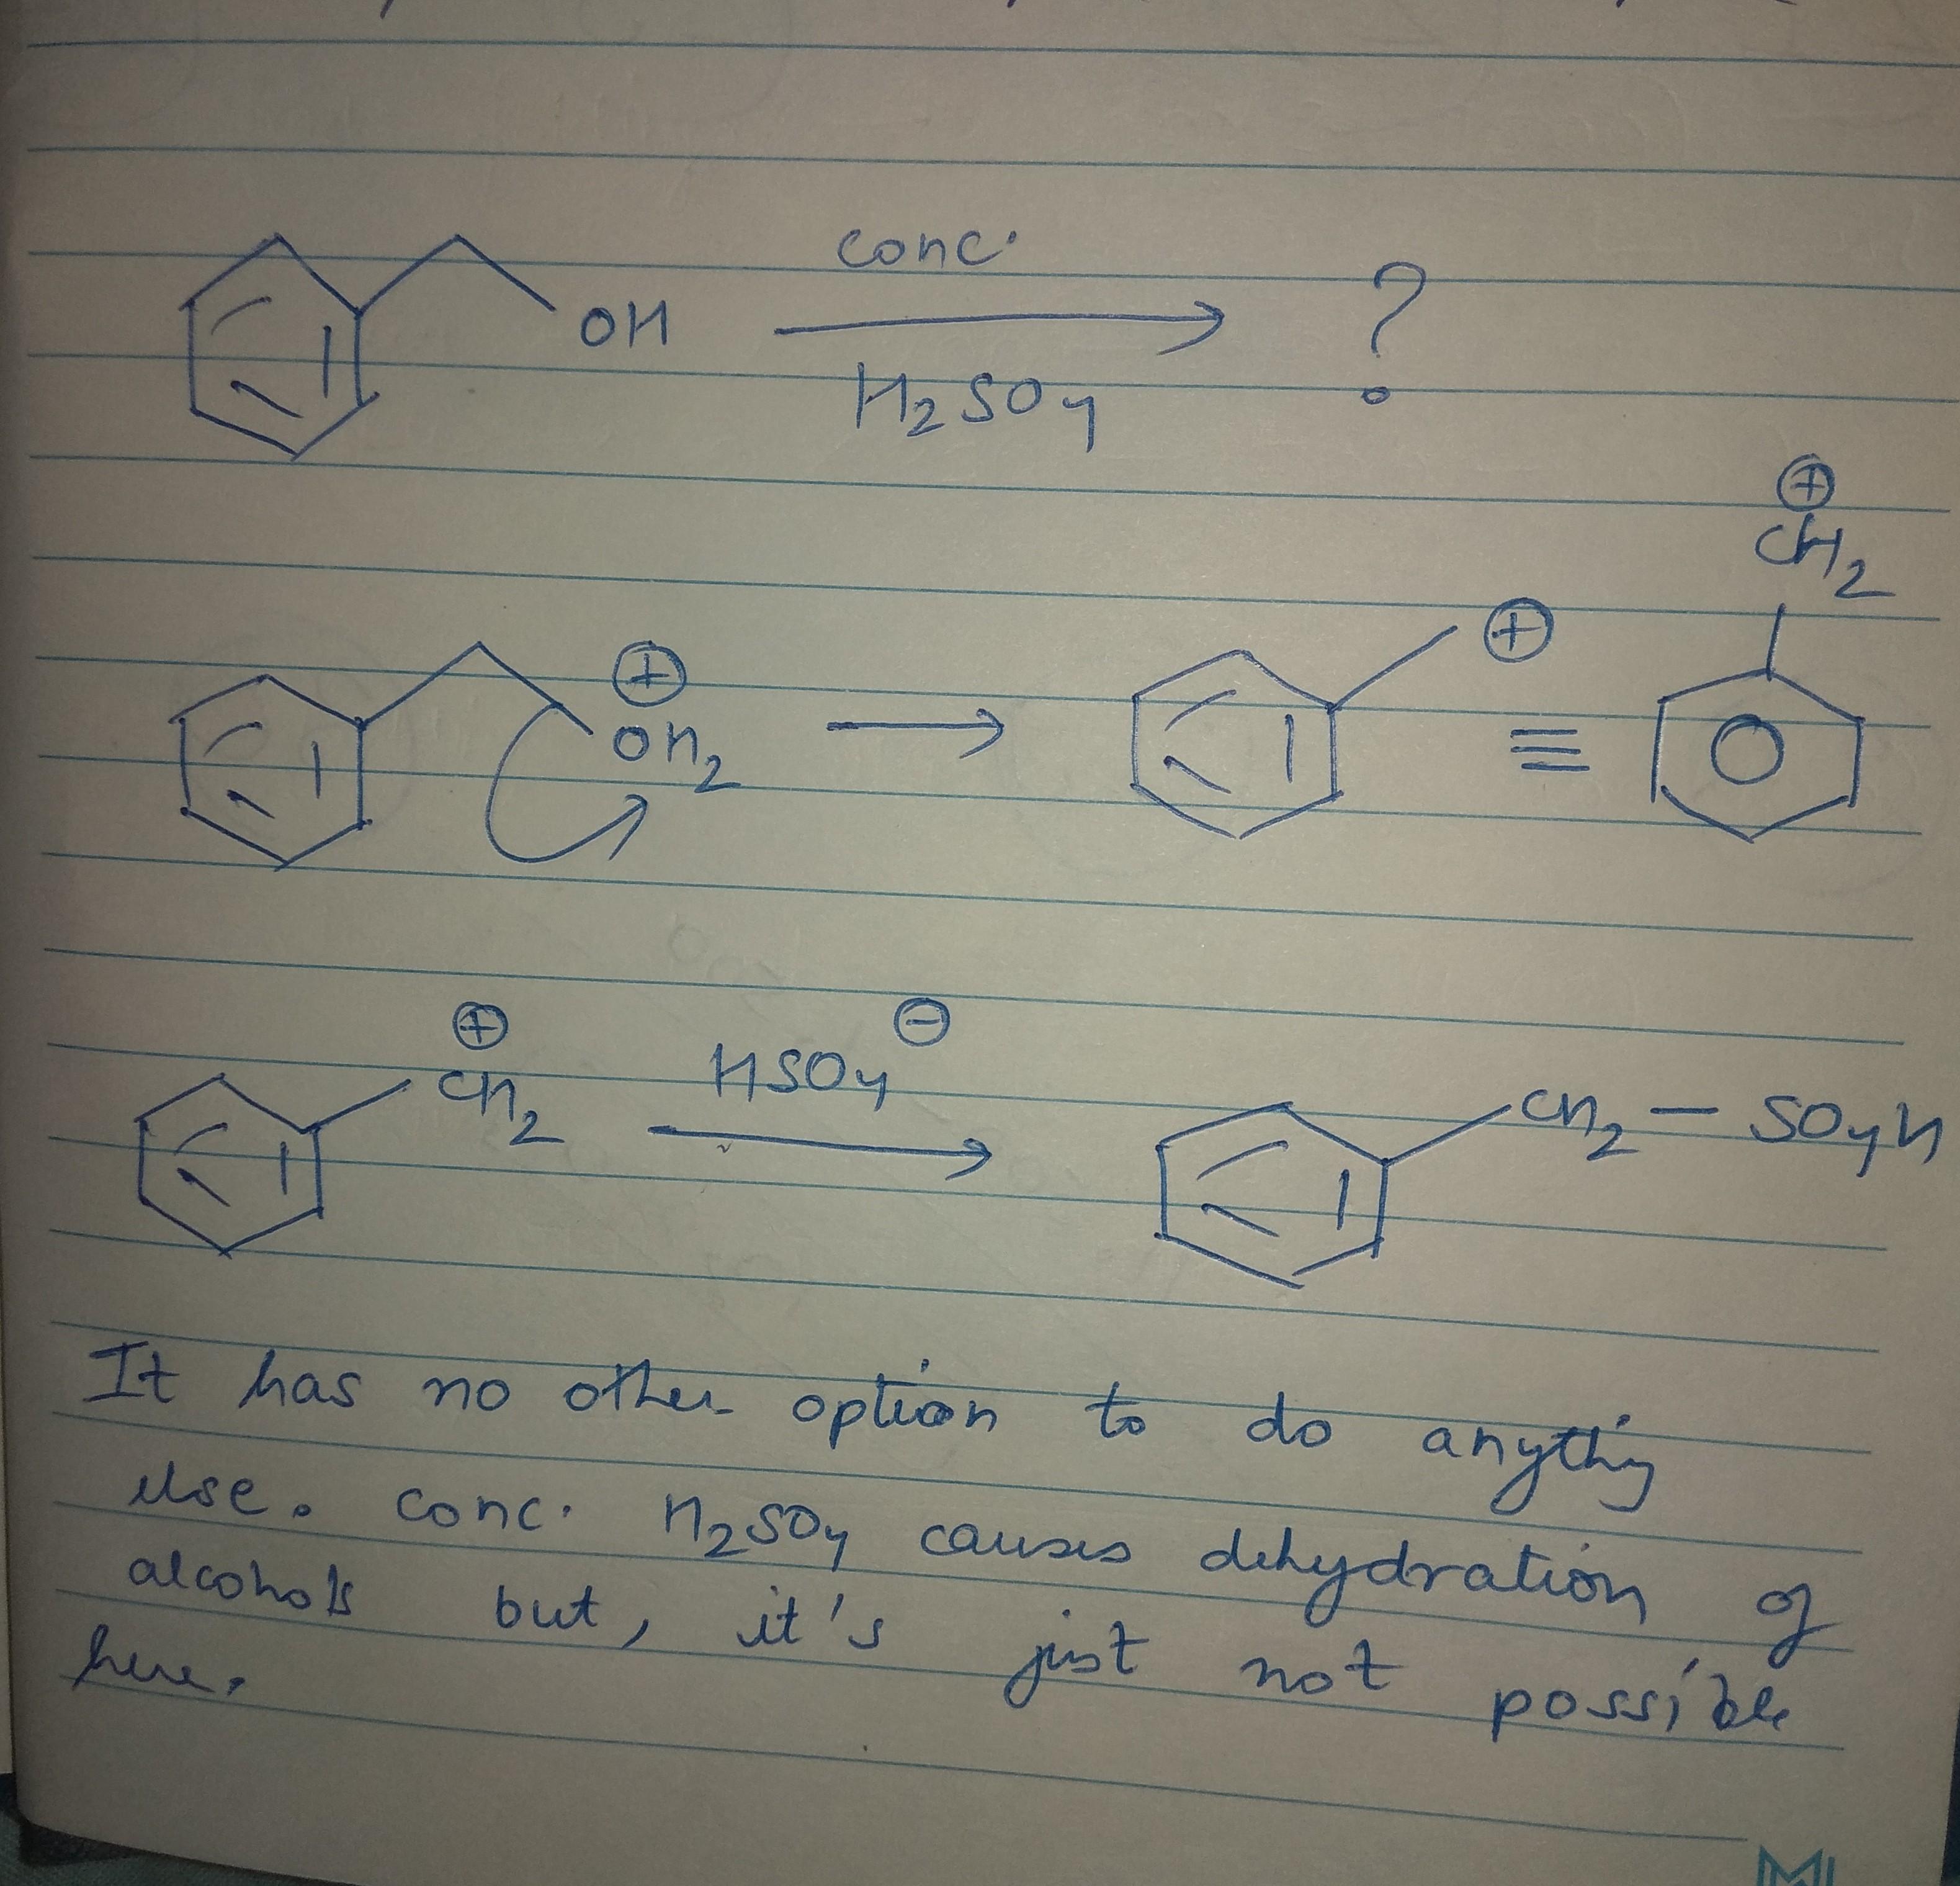 conc.
OH → ?
H2SO4
⊕
CH2
⊕ ⊕
OH2 → ≡
⊕ ⊖
CH2 HSO4 → CH2 — SO4H
It has no other option to do anythig
else. conc. H2SO4 causes dehydration of
alcohols but, it's just not possible
here.